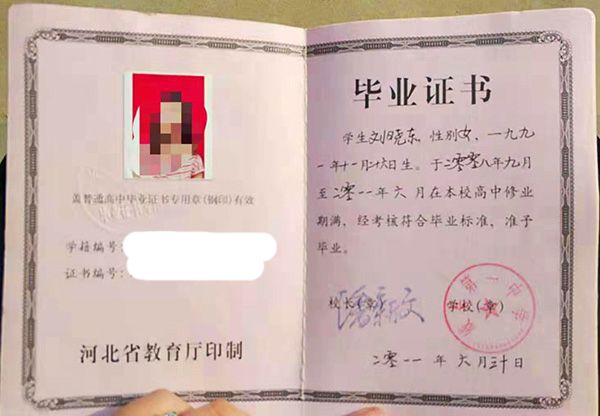 盖普通高中毕业证书专用章(钢印)有效
学籍编号:
证书编号:
河北省教育厅印制
毕业证书
学生刘晓东,性别女,一九九
一年十一月廿八日生。于二零零八年九月
至二零一一年六月在本校高中修业
期满,经考核符合毕业标准,准予
毕业。
校长(章)
学校(章)
第一中学
二零一一年六月三十日